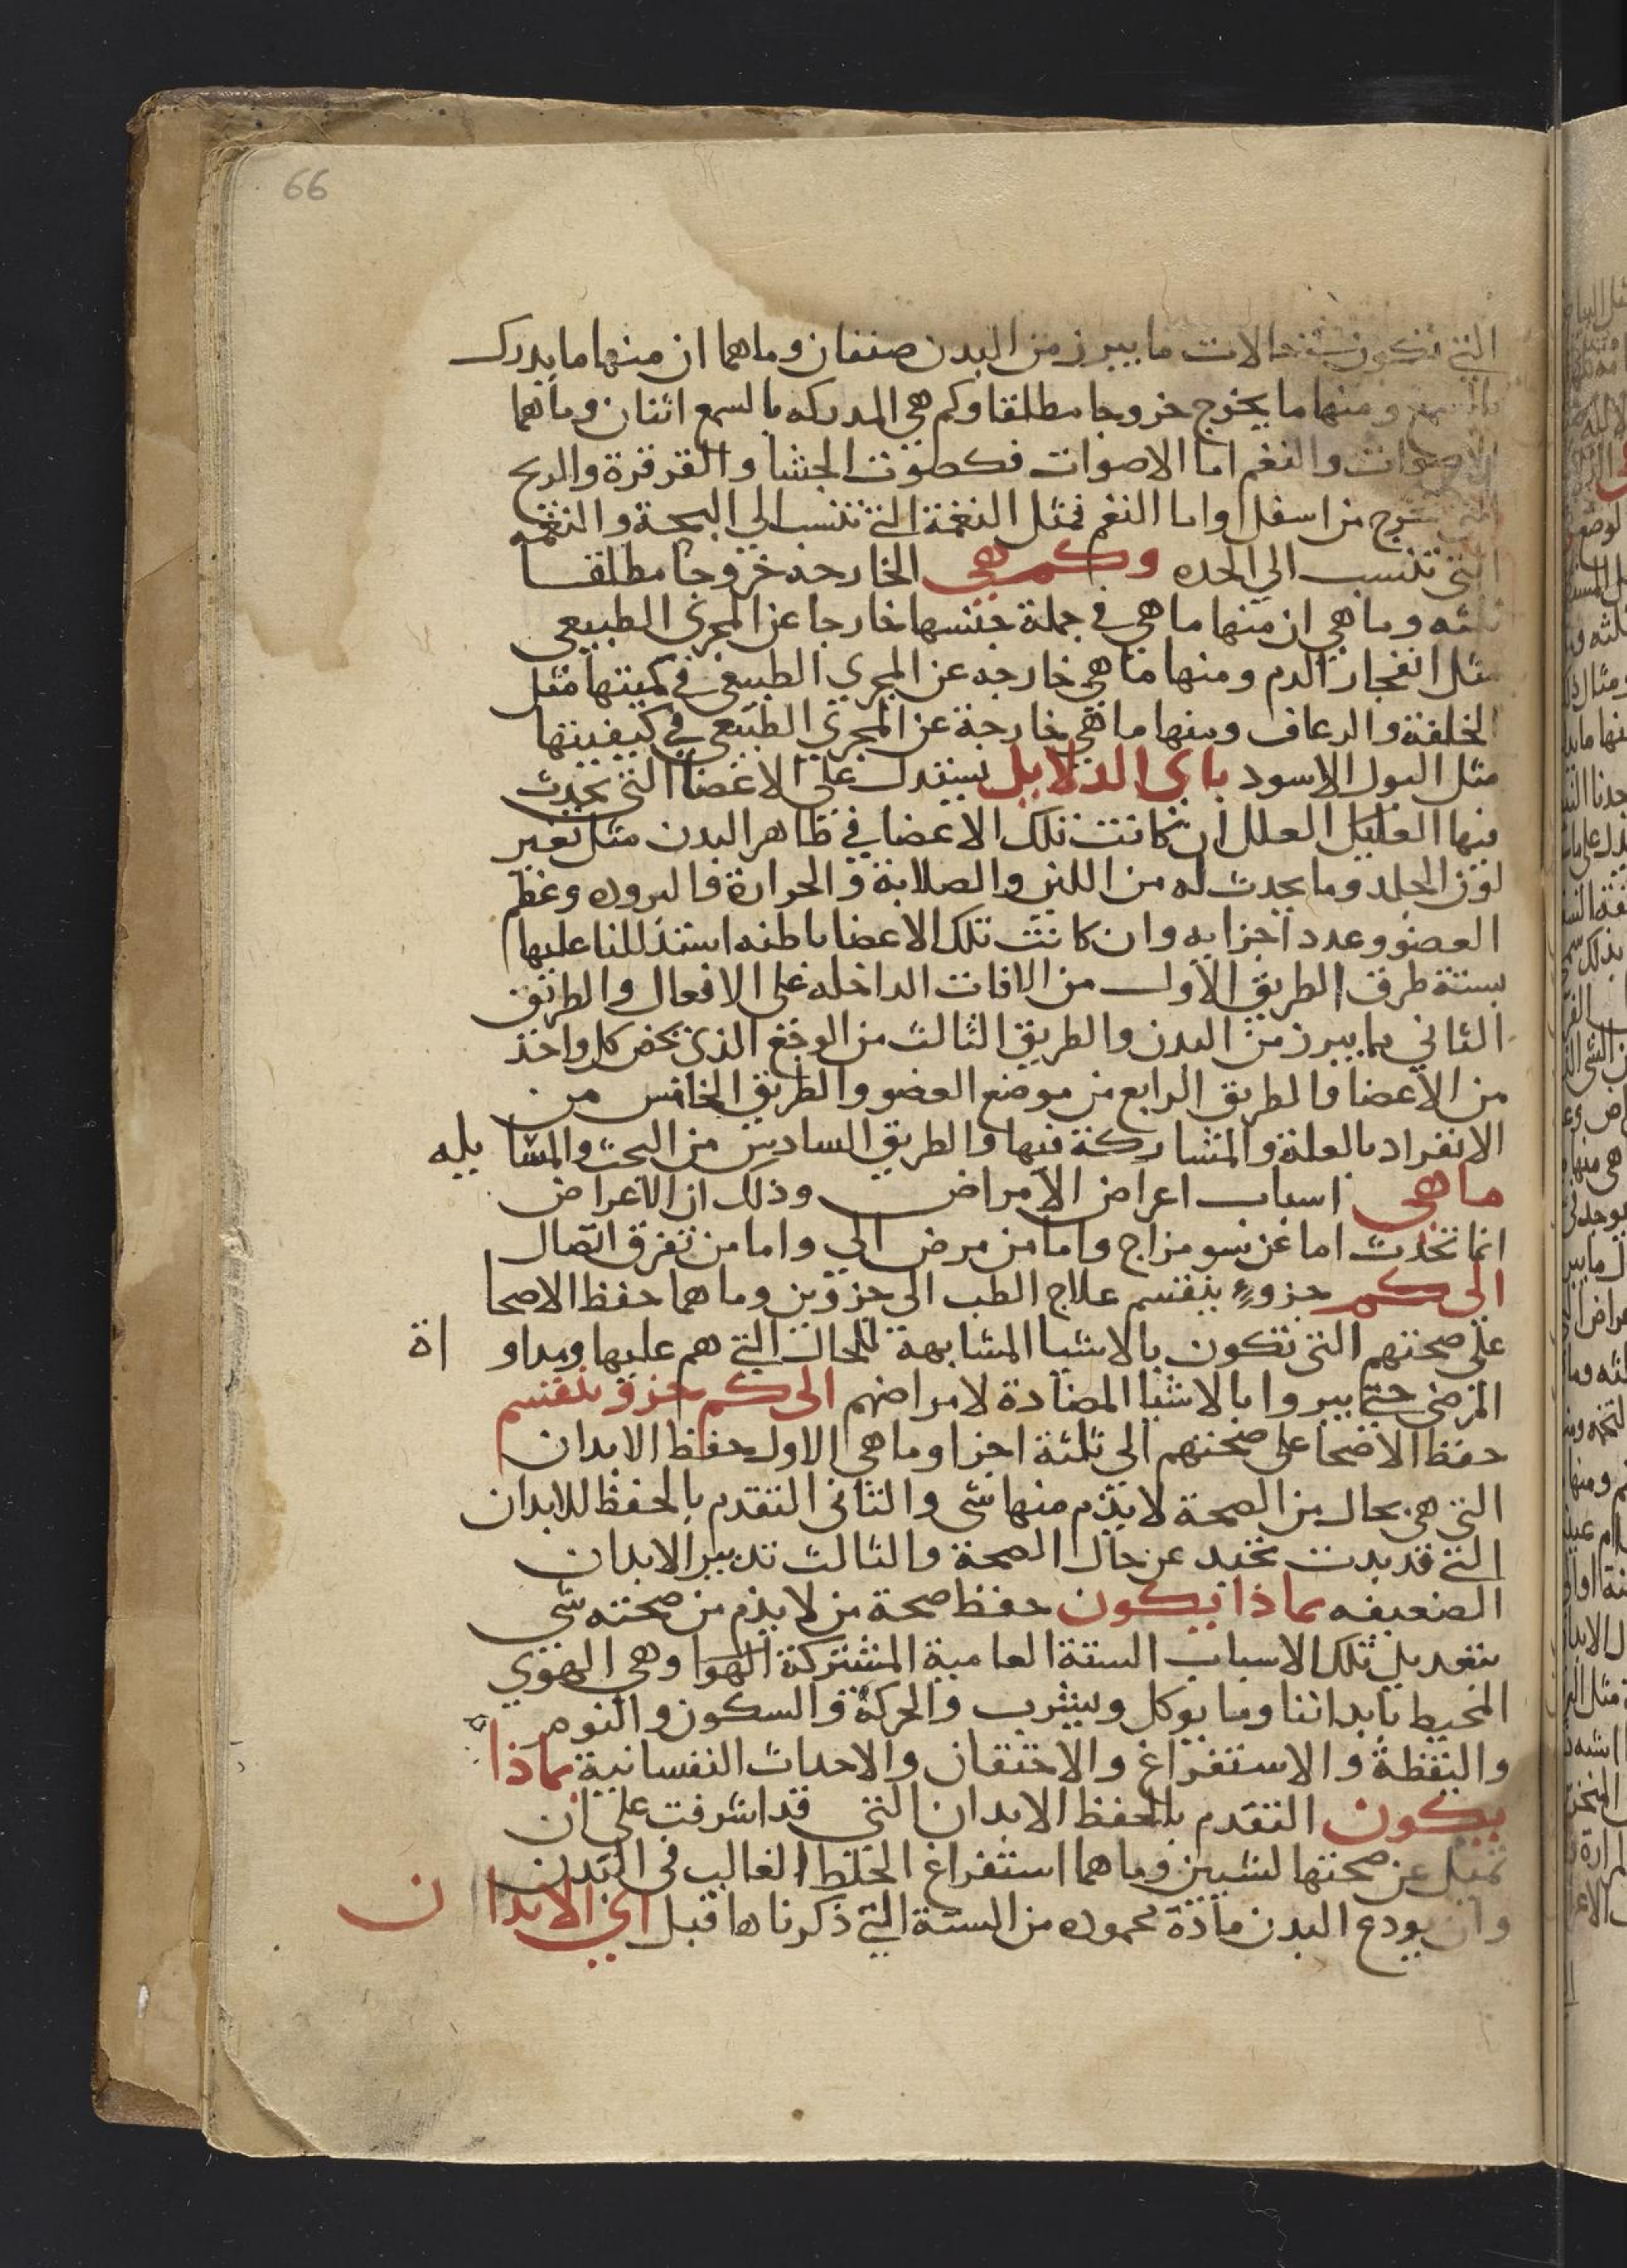 66
التي تكون حالات ما يبرز من البدن صنفان وما هما ان منها ما يدرك
بالسمع ومنها ما يخرج خروجا مطلقا وكم هي المدركه بالسمع اثنان وما هما
الاصوات والنغم اما الاصوات فكصوت الجشا والقرقرة والريح
التي تخرج من اسفل واما النغم فمثل النغمة التي تنسب الي البحة والنغمه
التي تنسب الي الحده وكم هي الخارجه خروجا مطلقا
ثلثه وما هي ان منها ما هي في جملة جنسها خارجا عن المجري الطبيعي
مثل انفجار الدم ومنها ما هي خارجه عن المجري الطبيعي في كميتها مثل
الخلفة والرعاف ومنها ما هي خارجة عن المجري الطبيعي في كيفيتها
مثل البول الاسود باي الدلايل يستدل علي الاعضا التي تحدث
فيها العلل ان كانت تلك الاعضا في ظاهر البدن مثل تغير
لون الجلد وما يحدث له من اللين والصلابة والحرارة والبروده وعظم
العضو وعدد اجزايه وان كانت تلك الاعضا باطنه استدللنا عليها
بستة طرق الطريق الاول من الافات الداخله علي الافعال والطريق
الثاني بما يبرز من البدن والطريق الثالث من الوجع الذي يخص كل واحد
من الاعضا والطريق الرابع من موضع العضو والطريق الخامس من
الانفراد بالعلة والمشاركة فيها والطريق السادس من البحث والمسا يله
ما هي اسباب اعراض الامراض وذلك ان الاعراض
انما تحدث اما عن سو مزاج واما من مرض الي واما من تفرق اتصال
الى كم جزوء ينقسم علاج الطب الى جزوين وما هما حفظ الاصحا
علي صحتهم التي تكون بالاشيا المشابهة للحال التي هم عليها ومداو اة
المرضي حتي يبروا بالاشيا المضادة لامراضهم الى كم جزو ينقسم
حفظ الاصحا على صحتهم الي ثلثة اجزا وما هي الاول حفظ الابدان
التي هي بحال من الصحة لا يذم منها شي والثاني التقدم بالحفظ للابدان
التي قد بدت تحيد عن حال الصحة والثالث تدبير الابدان
الضعيفه بماذا يكون حفظ صحة من لا يذم من صحته شي
بتعديل تلك الاسباب الستة العامية المشتركة الهوا وهي الهوي
المحيط بابداننا وما يوكل ويشرب والحركة والسكون والنوم
واليقظة والاستفراغ والاحتقان والاحداث النفسانية بماذا
يكون التقدم بالحفظ الابدان التي قد اشرفت علي ان
تميل عن صحتها لشيين وما هما استفراغ الخلط الغالب في البدن
وان يودع البدن مادة محموده من الستة التي ذكرناها قبل اي الابدا ن